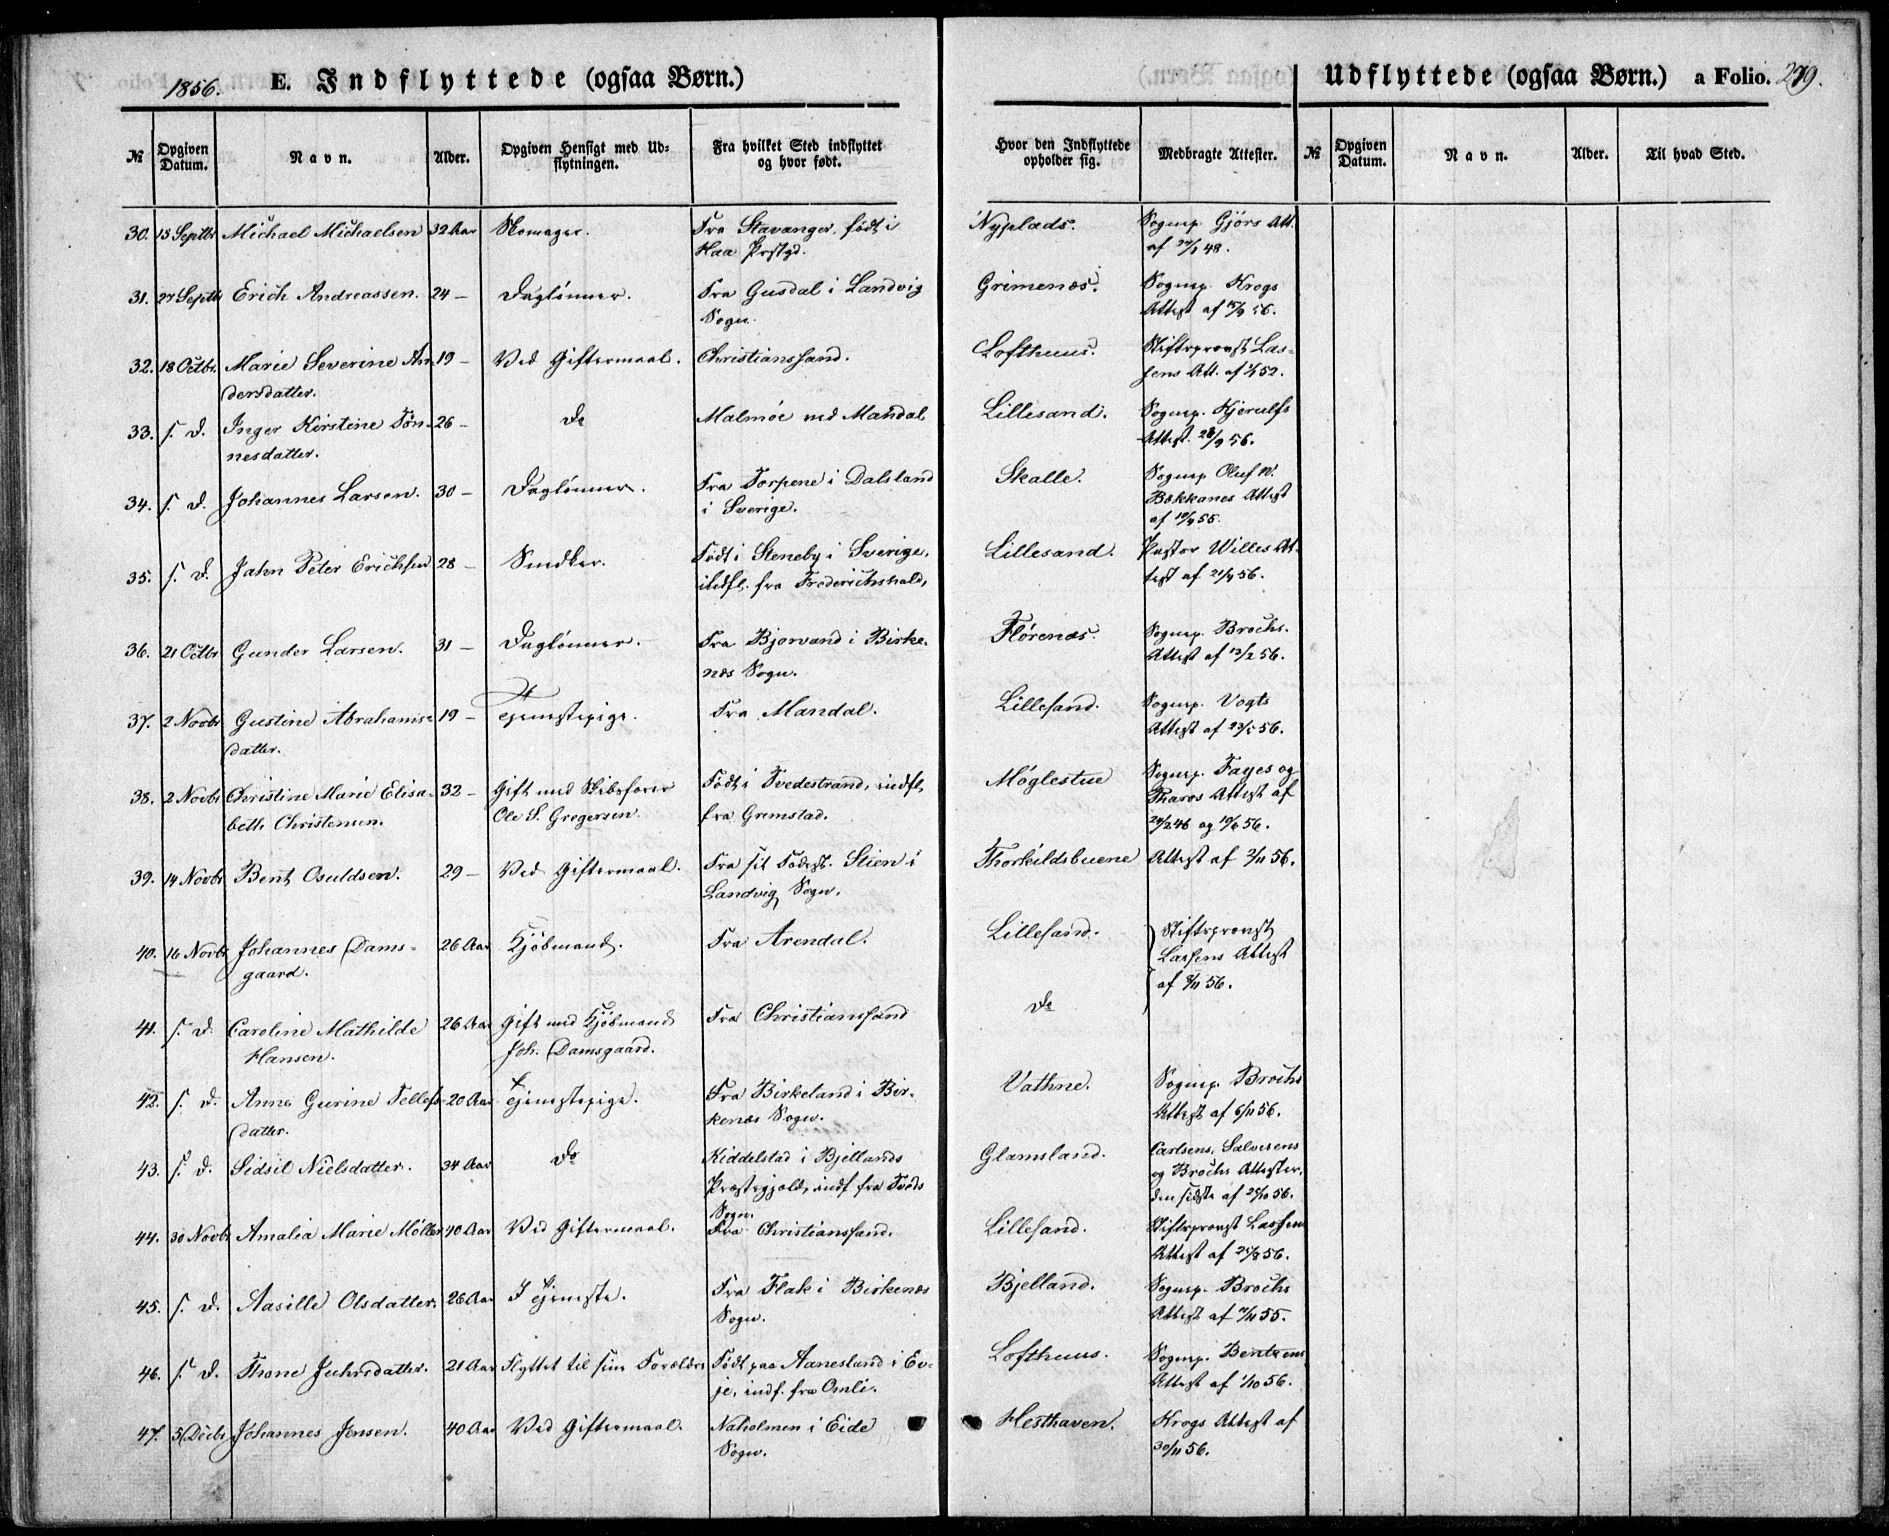 1856. E. Indflyttede (ogsaa Børn.) Udflyttede (ogsaa Børn.) a Folio. 279.
№ Opgiven Datum. Navn. Alder. Opgiven Hensigt med Udflytningen. Fra hvilket Sted indflyttet og hvor født. Hvor den Indflyttede opholder sig. Medbragte Attester. № Opgiven Datum. Navn. Alder. Til hvad Sted.
30. 15 Septbr Michael Michaelsen 32 Aar Skomager. Fra Stavanger, født i Nyplads. Sognep. Gjørs Att.
Haa Prstgd. af 48.
31. 27 Septbr Erich Andreassen. 24 — Daglønner. Fra Gusdal i Landvig Grimenæs. Sognep. Krogs
Sogn. Attest af 56.
32. 18 Octbr. Marie Severine An- 19 — Ved Giftermaal. Christianssand. Lofthuus. Stiftsprovst Las-
dersdatter. sens Att. af 52.
33. s. D. Inger Kirstine Tøn- 26 — Do Malmøe ved Mandal Lillesand. Sognep. Kjerulfs
nesdatter. Attest. 28/9 56.
34. s. D. Johannes Larsen. 30 — Daglønner. Fra Torpene i Dalsland Skalle. Sognep Oluf N.
i Sverige. Bækkanes Attest
af 55.
35. s. D. Jahn Peter Erichsen 28 — Snedker. Født i Steneby i Sverige, Lillesand. Pastor Willes At-
indfl. fra Frederichshald, test af 21/9 56.
36. 21 Octbr Gunder Larsen. 31 — Daglønner. Fra Bjorvand i Birke- Flørenæs. Sognep. Brochs.
næs Sogn. Attest af 13/2 56.
37. 2 Novbr Gustine Abrahams- 19 — Tjenestepige. Fra Mandal. Lillesand. Sognep. Vogts
datter. Attest af 23/5 56.
38. 2 Novbr Christine Marie Elisa- 32 — Gift med Skibsfører Født i Tvedestrand, indfl. Møglestue Sognep. Fayes og
beth Christensen. Ole S. Gregersen. fra Grimstad. Tharos Attest af
24/2 46 og 19/6 56.
39. 14 Novbr Bent Osuldsen. 29 — Ved Giftermaal. Fra sit Fødest. Stien i Thorkildsbuene Attest af 2/11 56.
Landvig Sogn.
40. 16 Novbr Johannes Dams- 26 Aar Kjøbmand. Fra Arendal. Lillesand. Stiftsprovst
gaard. Lassens Attest
af 8/11 56.
41. s. D. Caroline Mathilde 26 Aar Gift med Kjøbmand Fra Christianssand Do
Hansen. Joh. Damsgaard.
42. s. D. Anne Gurine Tellefs- 20 Aar Tjenestepige. Fra Birkeland i Bir- Vathne. Sognep. Brochs
datter. kenæs Sogn. Attest af 6/11 56.
43. s. D. Sidsil Nielsdatter. 34 Aar Do Kiddelstad i Bjellands Glamsland. Carlsens, Salvesens
Præstegjæld, indf fra Tveds og Brochs Attester,
Sogn. den sidste af 24/10 56.
44. 30 Novbr Amalia Marie Møller 40 Aar Ved Giftermaal. Fra Christianssand. Lillesand. Stiftsprovst Lassens
Attest af 25/8 56.
45. s. D. Aasille Olsdatter. 26 Aar I Tjeneste. Fra Flak i Birkenæs Bjelland. Sognep. Brochs
Sogn. Attest af 55.
46. s. D. Thone Juhrsdatter. 21 Aar Flyttet til sine Forældre Født paa Aanesland i Ev- Lofthuus. Sognep. Bentzens
je, indf. fra Omli. Attest af 1/10 56.
47. 5 Decbr Johannes Jensen. 40 Aar Ved Giftermaal. Naholmen i Eide Hesthaven. Krogs Attest af
Sogn. 30/11 56.